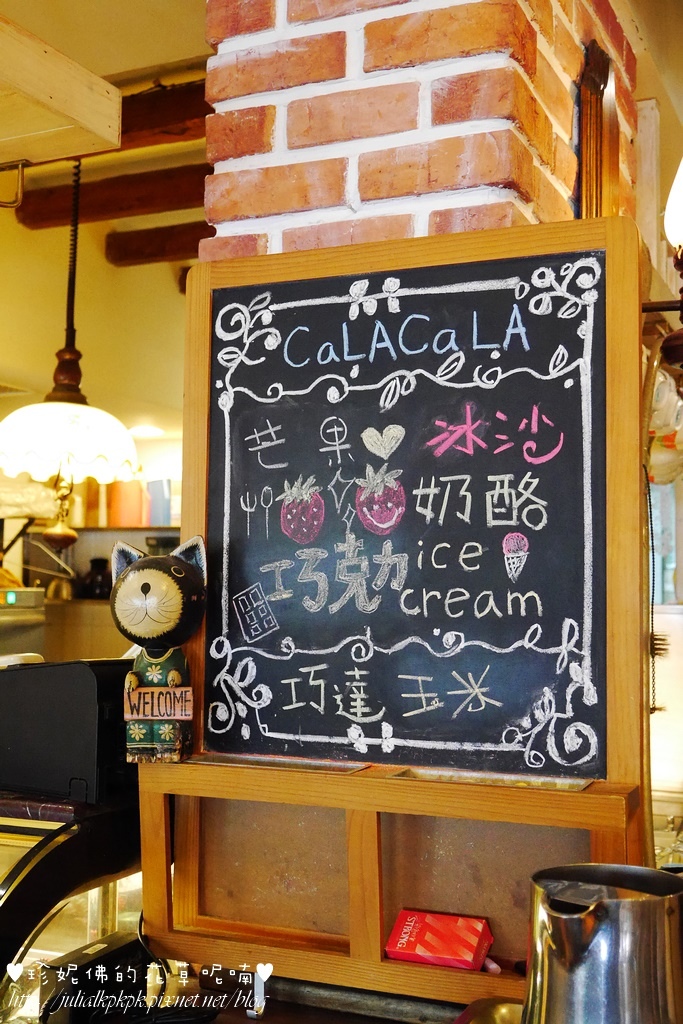 CaLACaLA
芒果 冰沙
奶酪
巧克力 ice
cream
巧達 玉米
WELCOME
STRONG
♥珍妮佛的花草呢喃♥
http://julialkpkpk.pixnet.net/blog